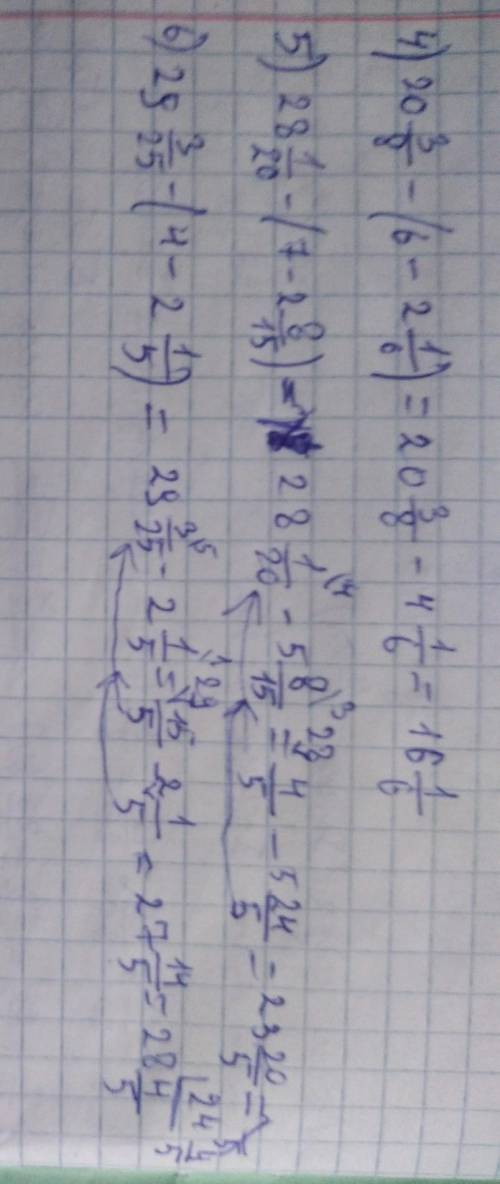 4) 20 3/8 - (6 - 2 1/6) = 20 3/8 - 4 1/6 = 16 1/6
5) 28 1/20 - (7 - 2 8/15) = 28 1/20 \4 - 5 8/15 \3 = 28 4/5 - 5 24/5 = 23 20/5 =
6) 29 3/25 - (4 - 2 1/5) = 29 3/25 \5 - 2 1/5 \1 = 29 15/5 - 2 1/5 = 27 14/5 = 28 4/5
24 4/5